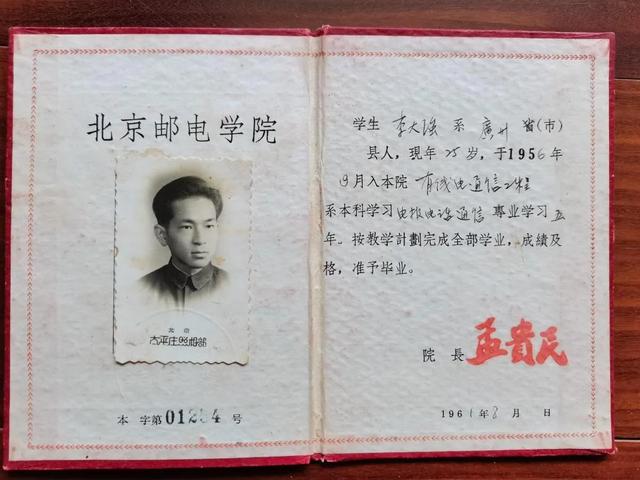 北京邮电学院
北京
太平庄照相部
本字第 号
学生 李大强 系 廣州 省(市)
县人，現年 25 岁，于1956年
9月入本院 有线电通信工程
系本科学习 电报电话通信 專业学习 五
年。按教学計劃完成全部学业，成績及
格，准予毕业。
院長 孟貴民
1961年8月 日